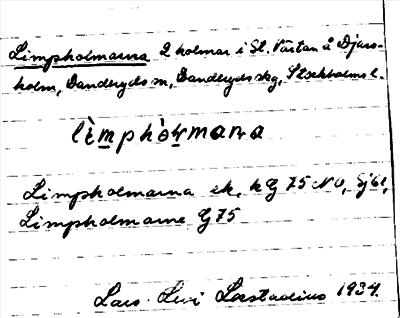 Limpholmarna 2 holmar i St. Värtan å Djurs-
holm, Danderyds sn, Danderyds skg, Stockholms l.
lìmphòɫmaɳa
Limpholmarna ek. kG 75 NO, Sj 61,
Limpholmarne G 75
Lars Levi Læstadius 1934.